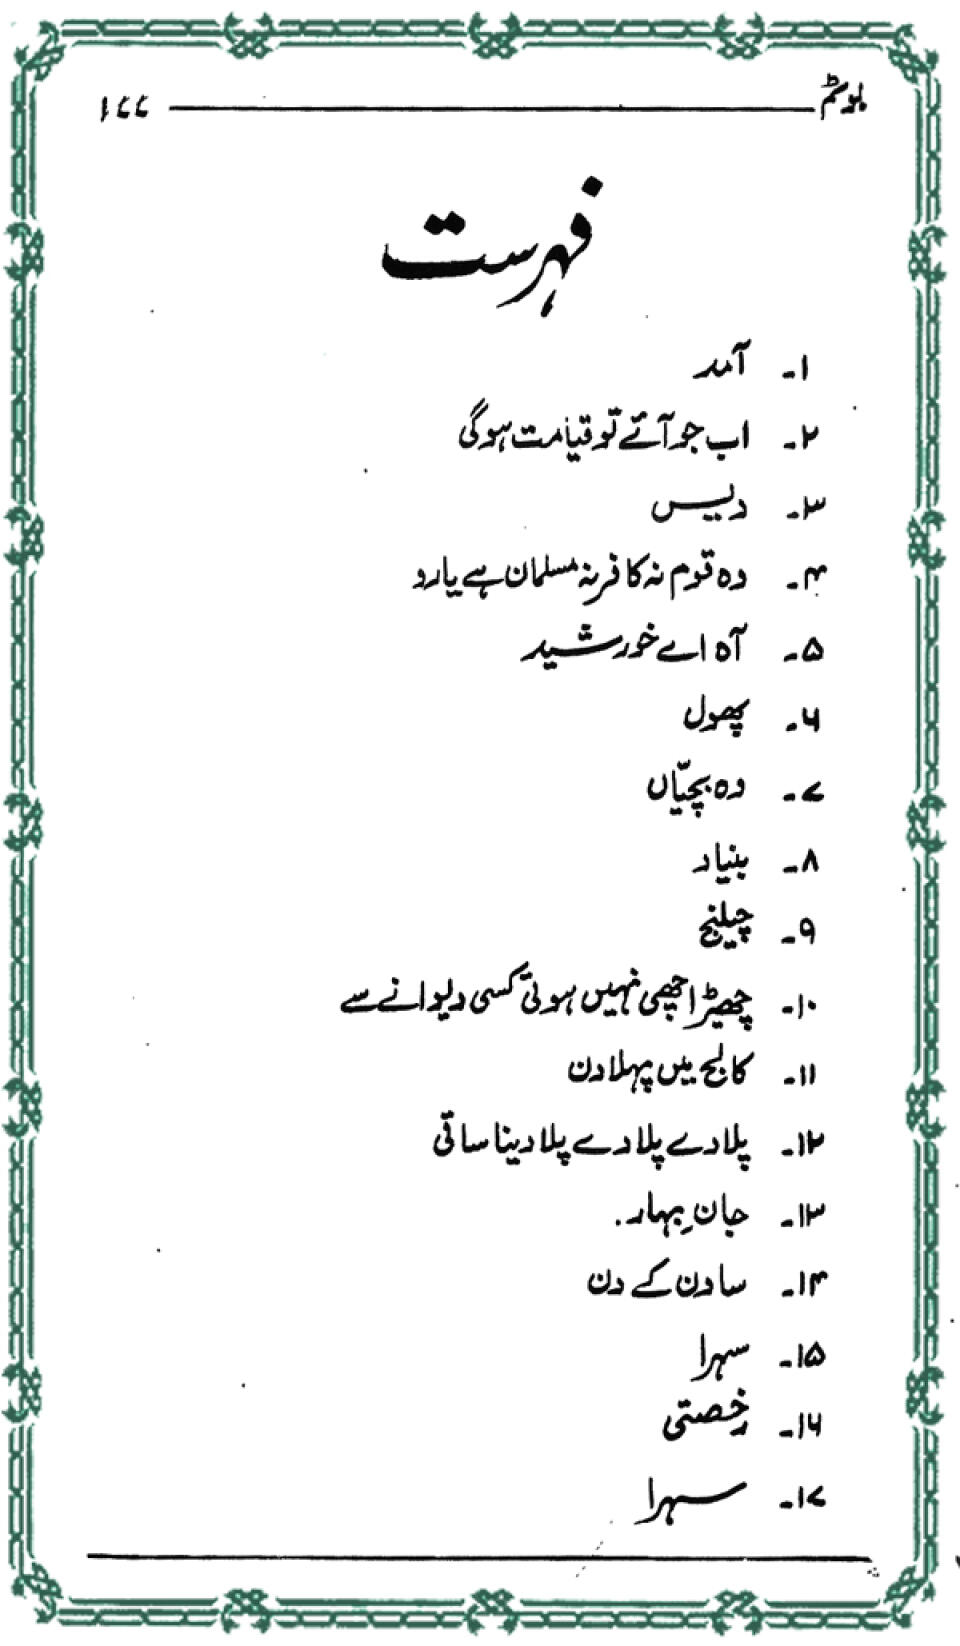 بوٹم ۱۷۷
فہرست
۱۔ آمد
۲۔ اب جو آئے تو قیامت ہوگی
۳۔ دیس
۴۔ وہ قوم نہ کافر نہ مسلمان ہے یارو
۵۔ آہ اے خورشید
۶۔ پھول
۷۔ وہ بچیّاں
۸۔ بنیاد
۹۔ چیلنج
۱۰۔ چھیڑ اچھی نہیں ہوتی کسی دیوانے سے
۱۱۔ کالج میں پہلا دن
۱۲۔ پلا دے پلا دے پلا دینا ساقی
۱۳۔ جانِ بہار
۱۴۔ ساون کے دن
۱۵۔ سہرا
۱۶۔ رخصتی
۱۷۔ سہرا